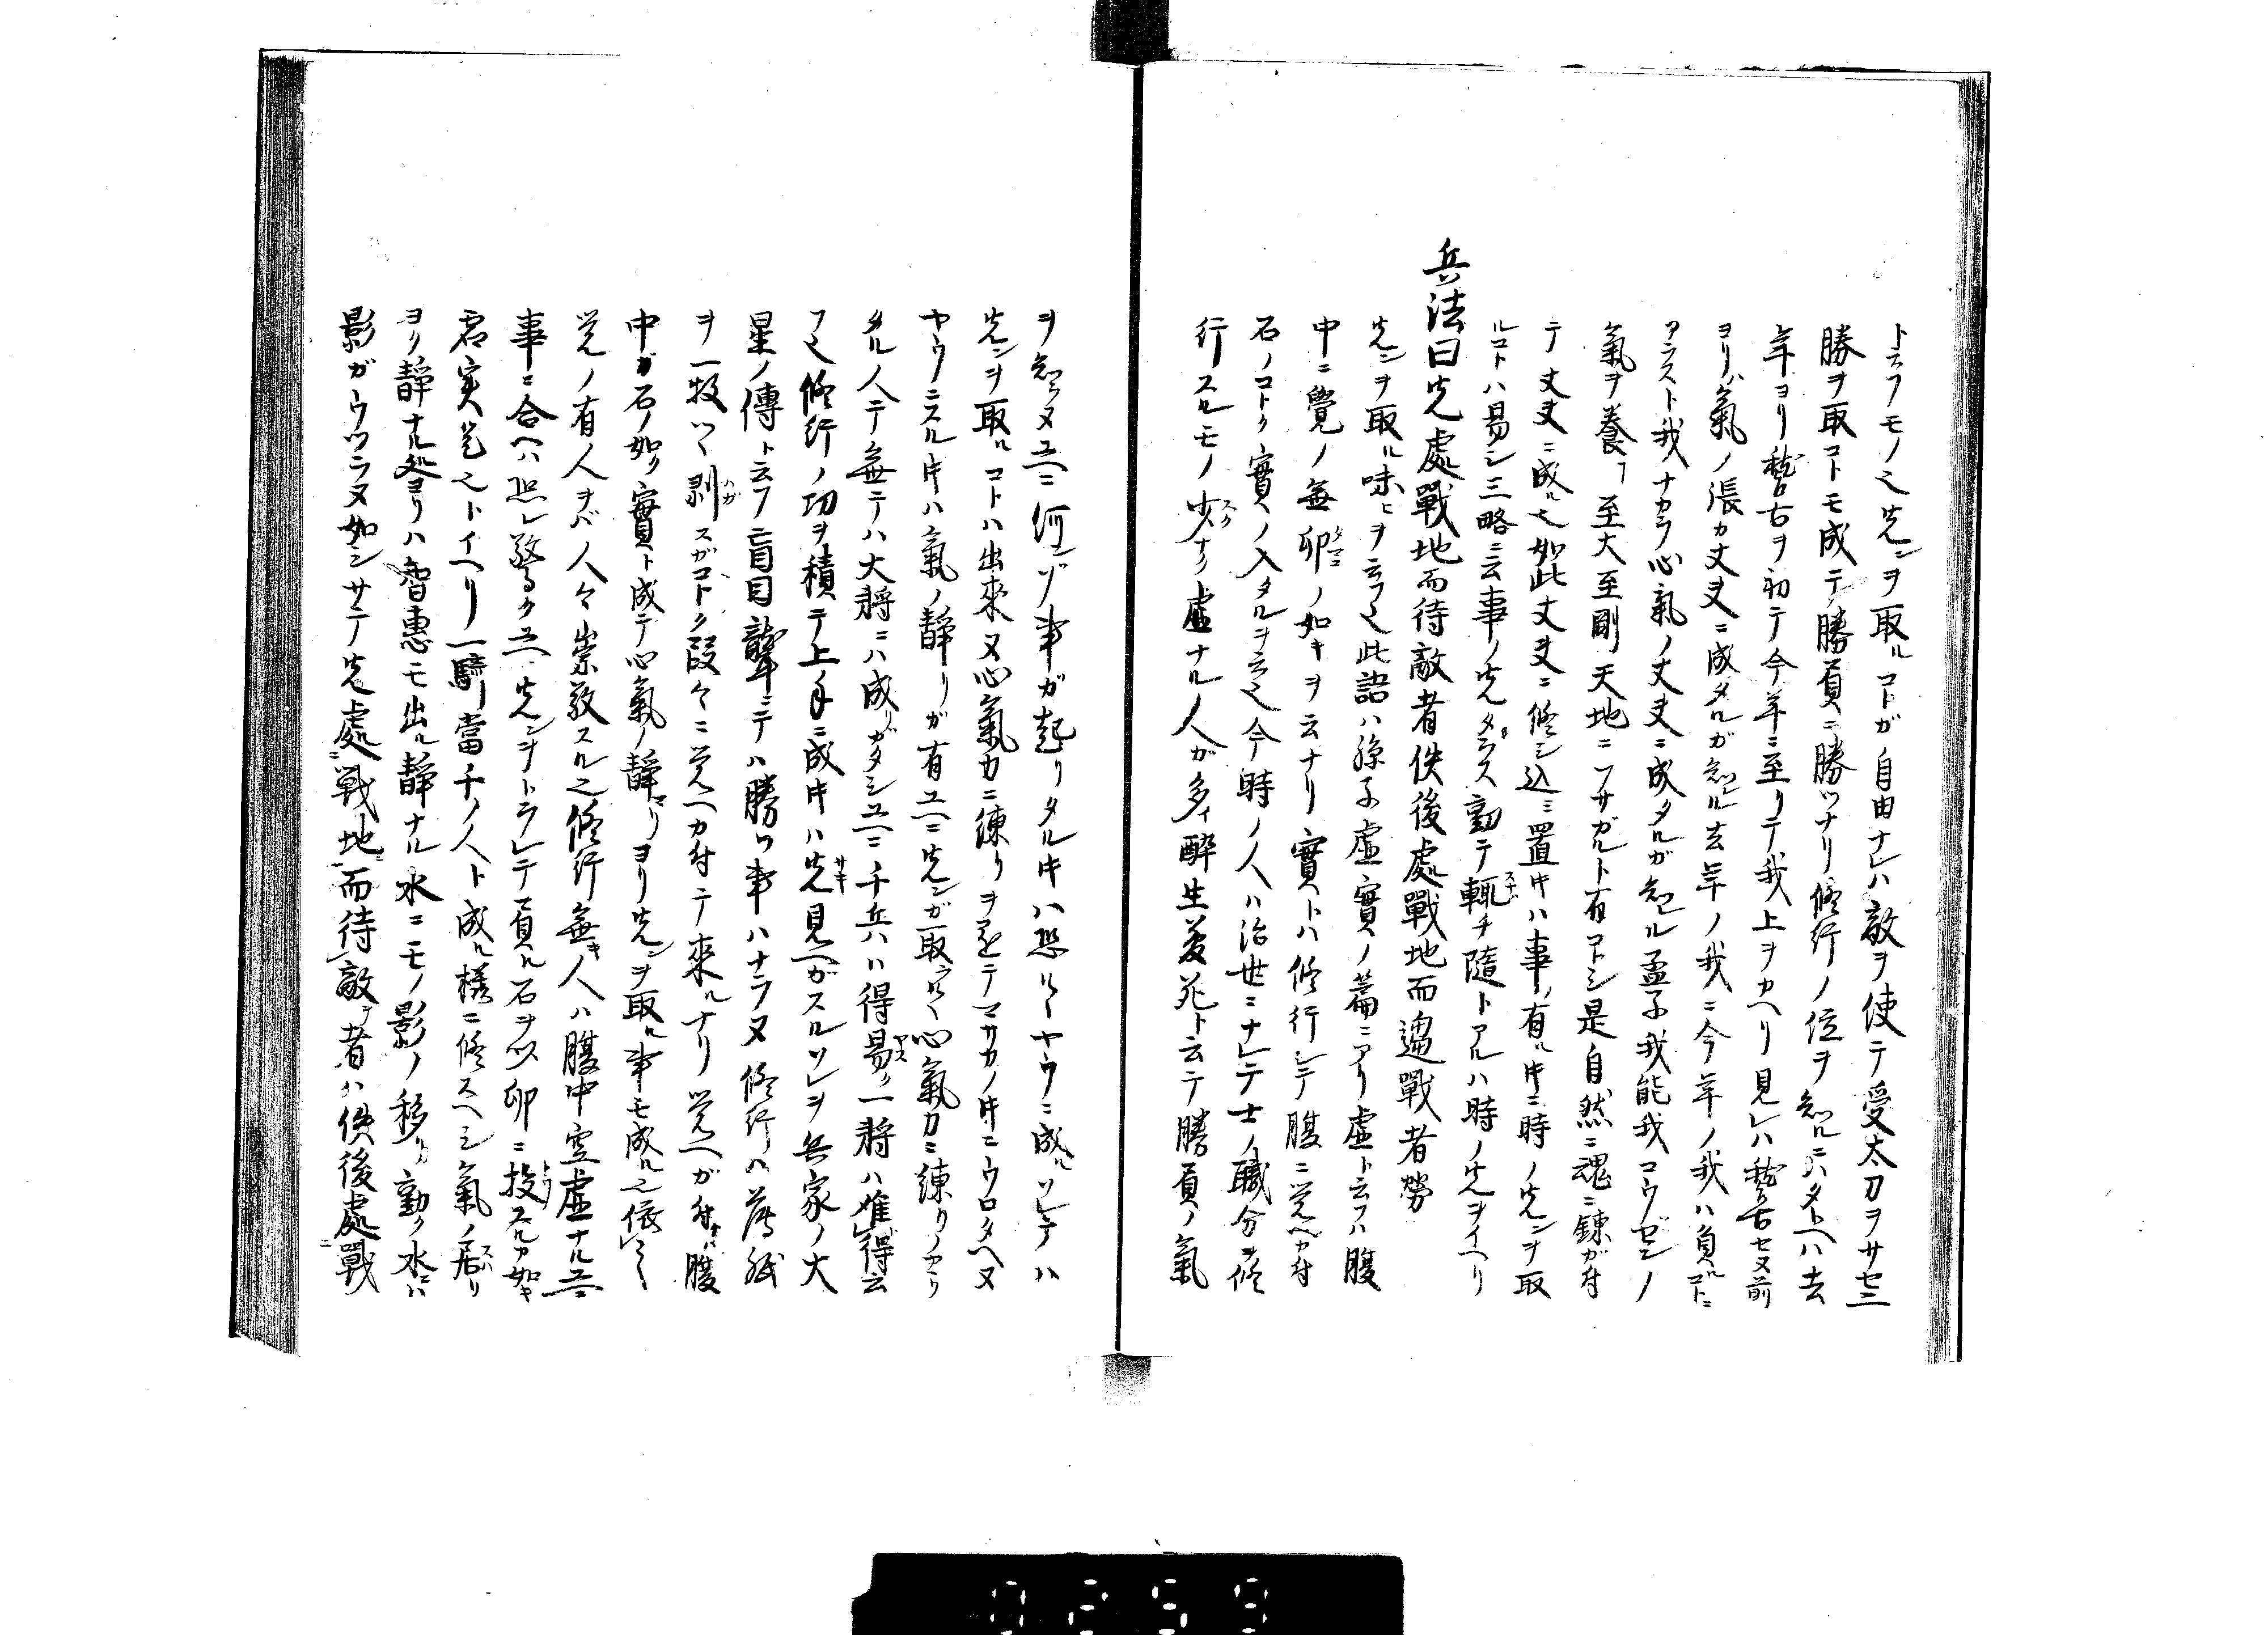 ト云フモノ也先ンヲ取ルコトガ自由ナレハ敵ヲ使テ受太刀ヲサセ
勝ヲ取コトモ成テ勝負ニ勝ツナリ修行ノ位ヲ知ルニハタトヘハ去
年ヨリ稽古ヲ初テ今年ニ至リテ我上ヲカヘリ見レハ稽古セヌ前
ヨリハ氣ノ張カ丈夫ニ成タルガ知ヒル去年ノ我ニ今年ノ我ハ負ルコトニ
アラスト我ナカラ心氣ノ丈夫ニ成タルガ知ヒル孟子我能我コウゼンノ
氣ヲ養フ至大至剛天地ニフサガルト有コトシ是自然ニ魂ニ錬ガ付
テ丈夫ニ成ル也如此丈夫ニ修シ込ミ置キハ事有ル中ニ時ノ先ンヲ取
ルコトハ易シ三略ニ云事ノ先タラス動テ輒チ隨トアルハ時ノ先ヲイヘリ
兵法曰先處戰地而待敵者佚後處戰地而趨戰者勞
先ンヲ取ル味ヒヲ云フ也此語ハ孫子虛實ノ篇ニアリ虛ト云フハ腹
中ニ覺ノ無卵ノ如キヲ云ナリ實トハ修行シテ腹ニ覚ヘガ付
石ノコトク實ノ入タルヲ云也今時ノ人ハ治世ニナレテ士ノ職分ヲ修
行スルモノ少ナク虛ナル人ガ多イ醉生夢死ト云テ勝負ノ氣
ヲ知ラヌ故ニ何ゾ事ガ起リタル時ハ恐ルヽヤウニ成ルソレデハ
先ンヲ取ルコトハ出來ヌ心氣力ニ練リヲ
ヤウニスル時ハ氣ノ靜リガ有故ニ先ンガ取ラルヽ心氣力ニ練リノ
タル人テ無テハ大將ニハ成リガタシ故ニ千兵ハ得易ク一將ハ難得云
フ也修行ノ功ヲ積テ上手ニ成時ハ先見ヘガスルソレヲ兵家ノ大
星ノ傳ト云フ盲目聾ニテハ勝ツ事ハナラヌ修行ハ薄紙
ヲ一枚ツヽ剥スガコトク段々ニ覚ヘカ付テ來ルナリ覚ヘガ付ケハ腹
中ガ石ノ如ク實ト成テ心氣ノ靜マリヨリ先ンヲ取ル事モ成ル也
覚ノ有人ヲバ人々崇敬スル也修行無キ人ハ腹中空虛ナル故ニ
事ニ合ヘハ恐レ驚ク故ニ先ンヲトラレテ負ル石ヲ以卵ニ投ルカ如キ
虛実是也トイヘリ一騎當千ノ人ト成ル樣ニ修スヘシ氣ノ居リ
ヨリ靜ナル處ヨリハ智惠モ出ル靜ナル水ニモノ影ノ移リ動ク水ニハ
影ガウツラヌ如シサテ先處戰地而待敵者ハ佚後處戰